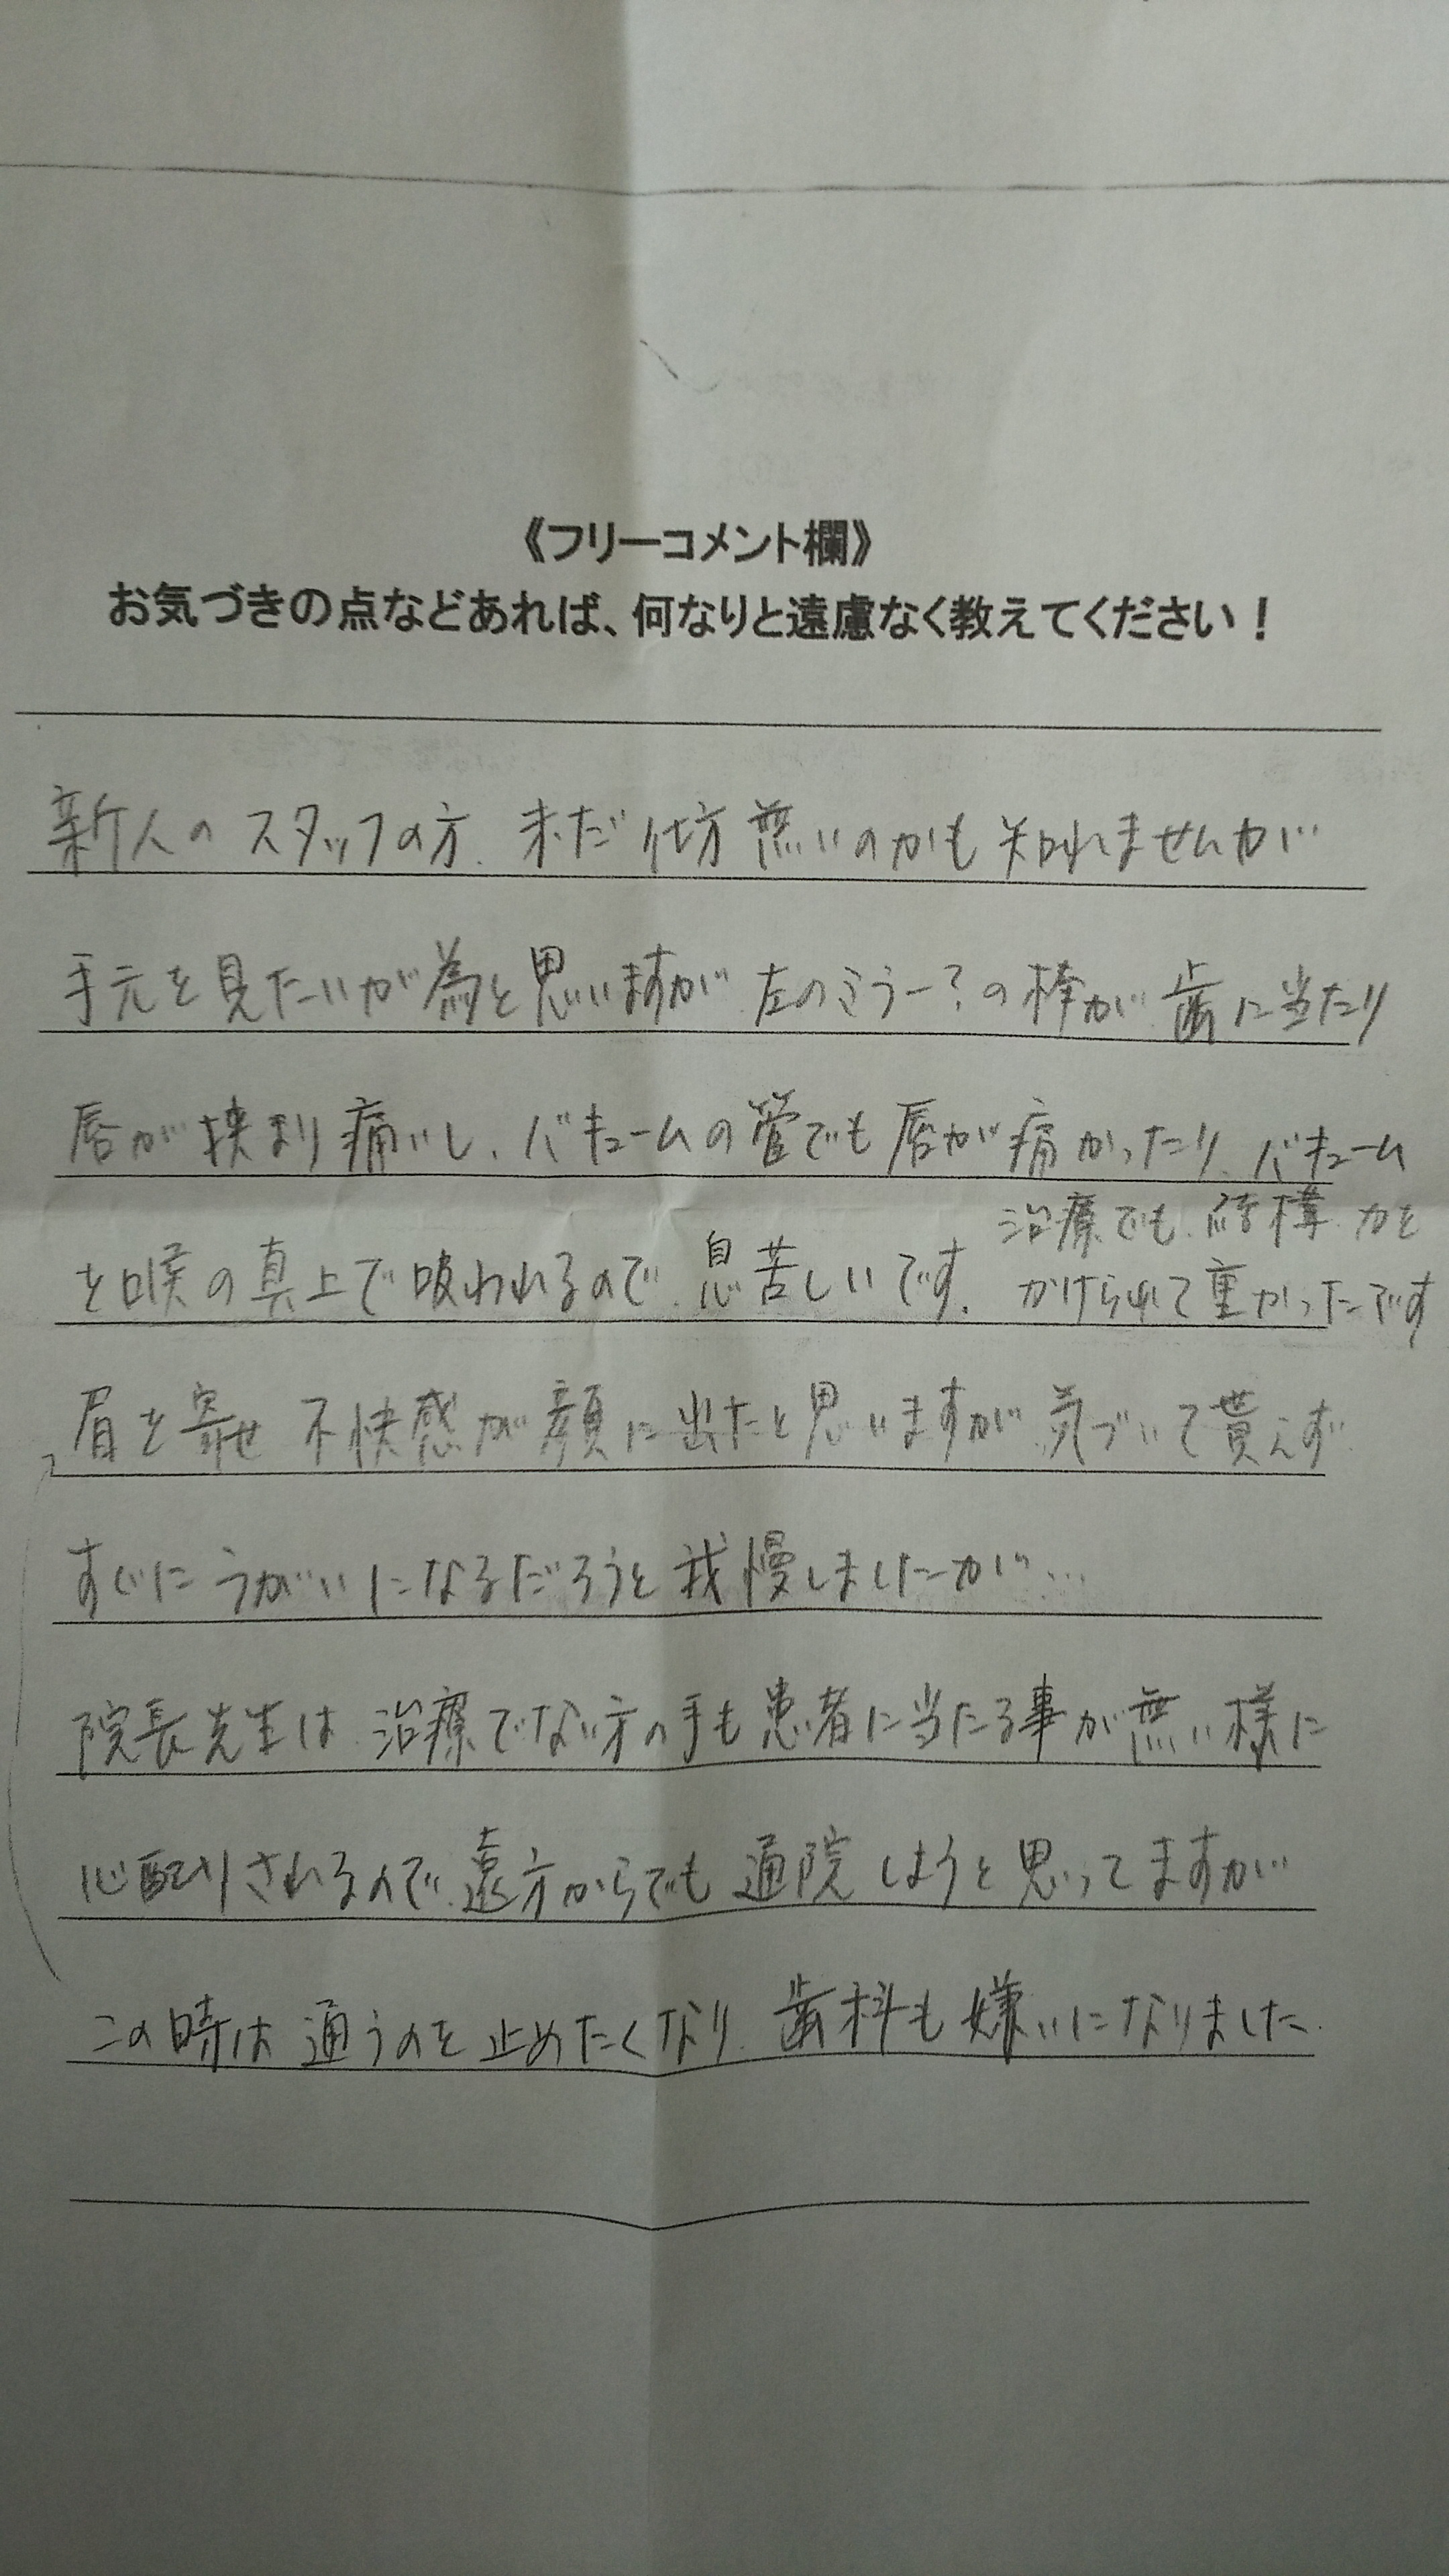 《フリーコメント欄》
お気づきの点などあれば、何なりと遠慮なく教えてください！
新人のスタッフの方、未だ仕方無いのかも知れませんが
手元を見たいが為と思いますが 左のミラー？の棒が 歯に当たり
唇が挟まり痛いし、バキュームの管でも唇が痛かったり、バキューム
を喉の真上で吸われるので、息苦しいです。
治療でも 結構 力を
かけられて重かったです
眉を寄せ 不快感が顔に出たと思いますが、気づいて貰えず
すぐに うがいになるだろうと 我慢しましたが…
院長先生は 治療でない方の手も患者に当たる事が無い様に
心配りされるので、遠方からでも 通院しようと思ってますが
この時は 通うのを 止めたくなり、歯科も嫌いになりました。